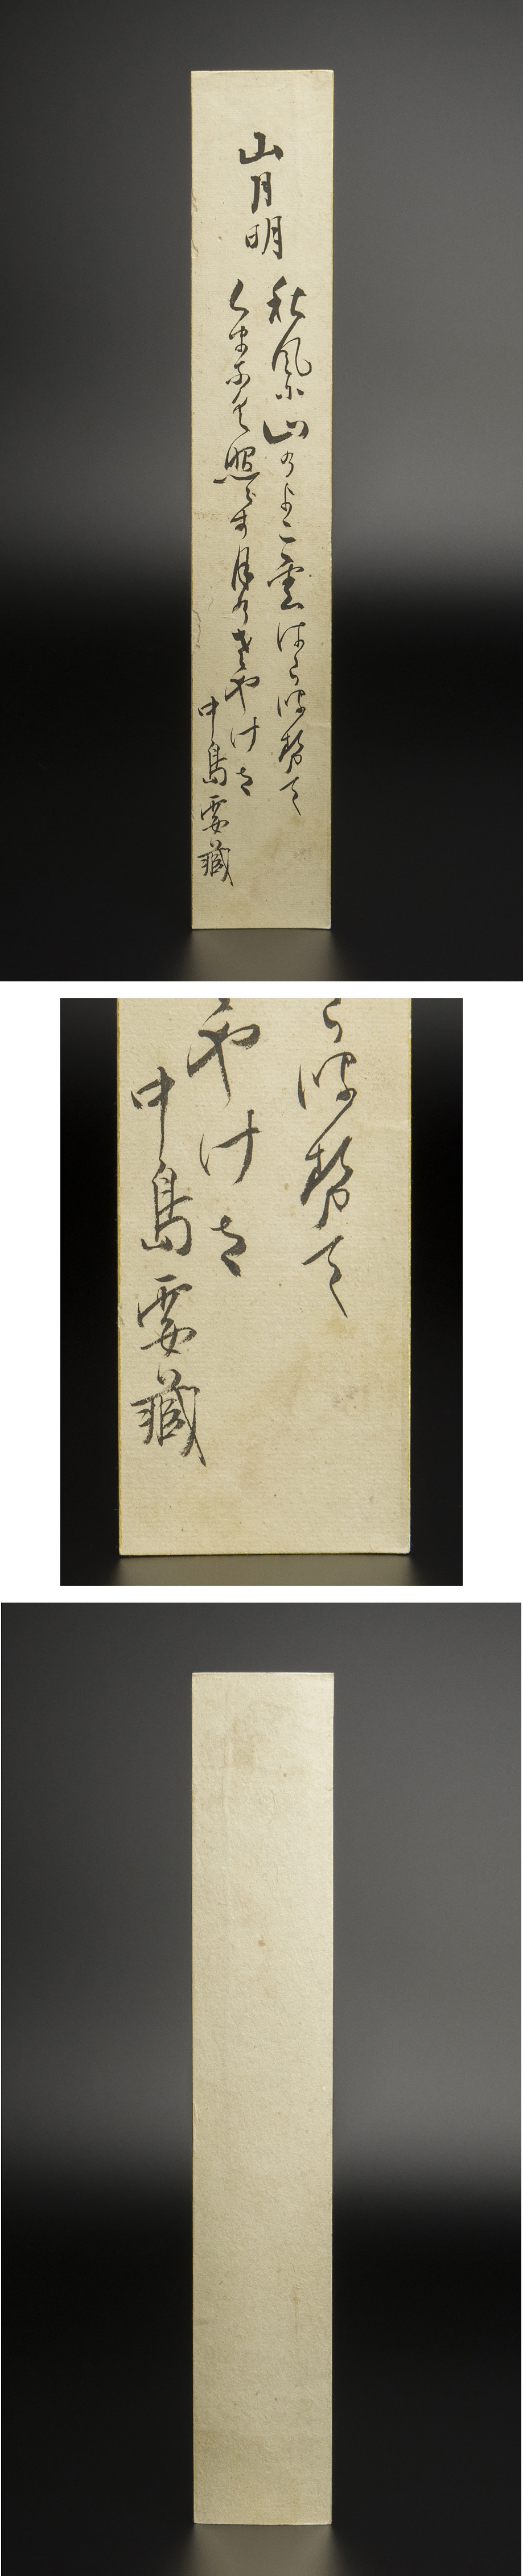 山月明
秋風に山のよこ雲はらはせて
くまなく照らす月のさやけさ
中島要藏
らはせて
やけさ
中島要藏